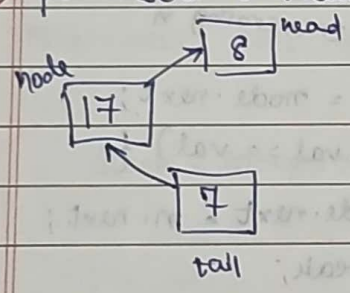 head
8
node
17
7
tail